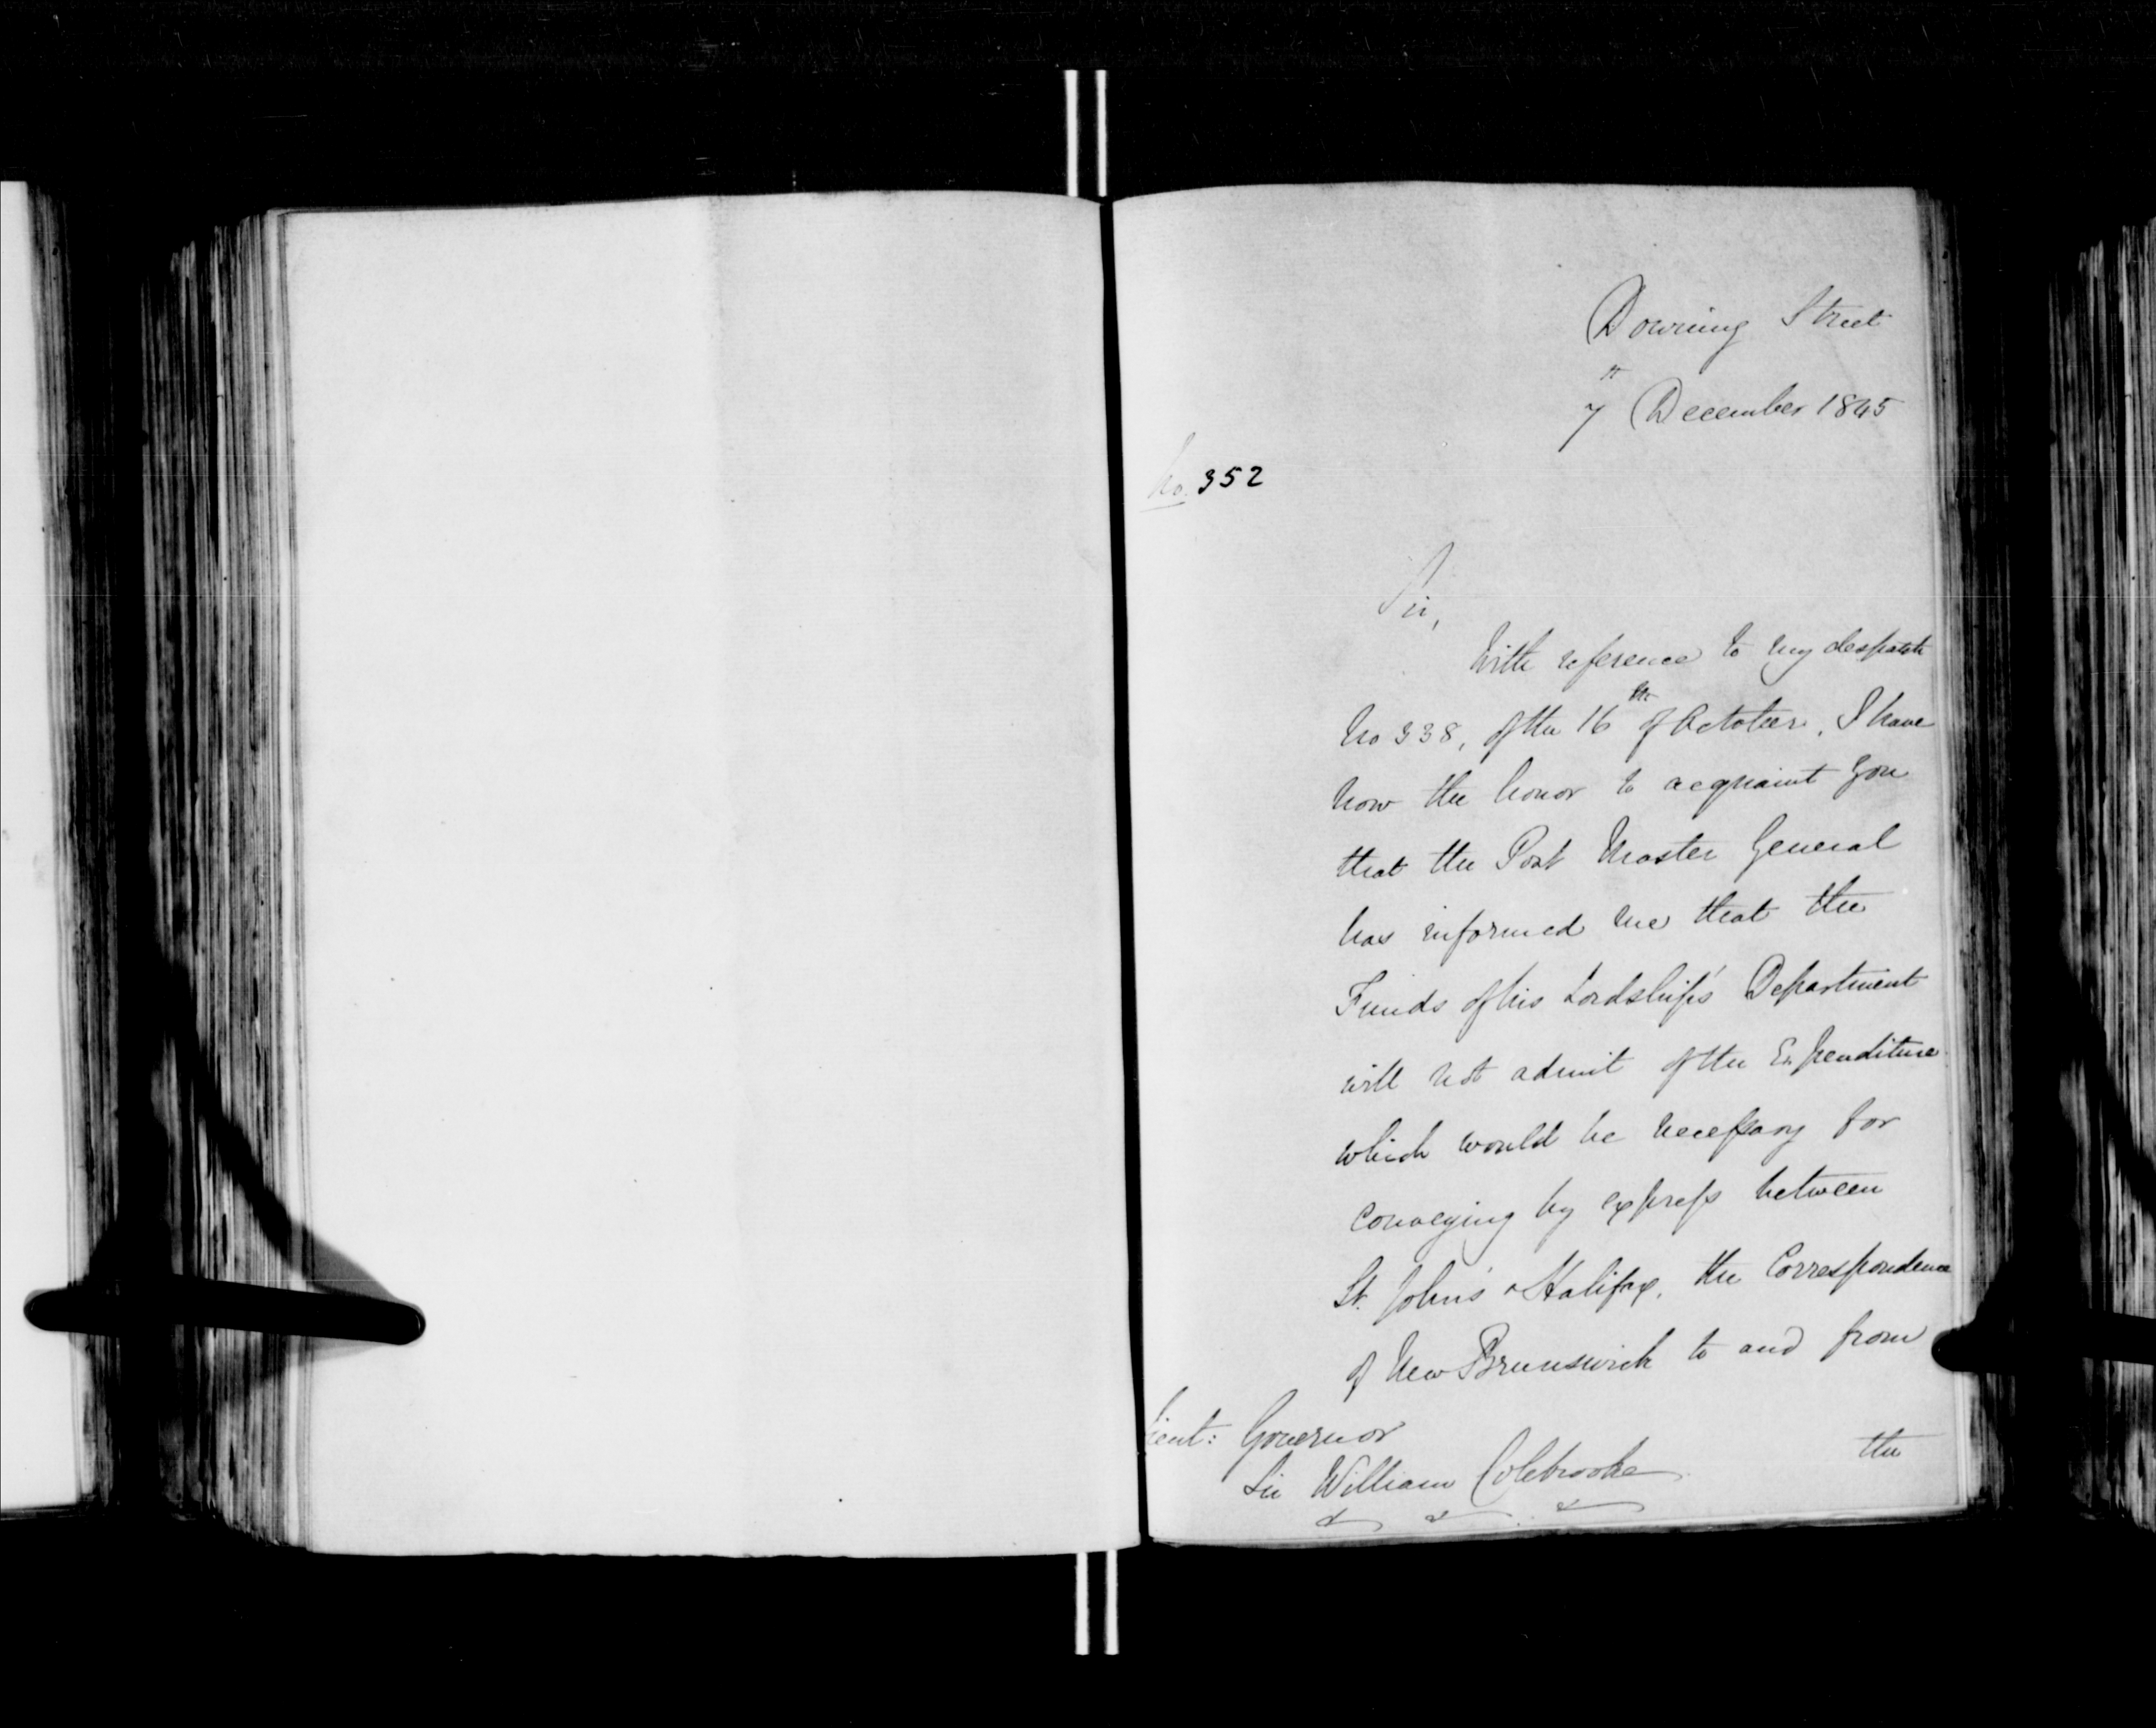 Downing Street
7th December 1845
No. 352
Sir,
With reference to my despatch
No 338, of the 16th of October, I have
now the honor to acquaint you
that the Post Master General
has informed me that the
Funds of his Lordship's Department
will not admit of the Expenditure
which would be necessary for
conveying by express between
St. John's & Halifax, the Correspondence
of New Brunswick to and from
the
Lieut: Governor
Sir William Colebrooke